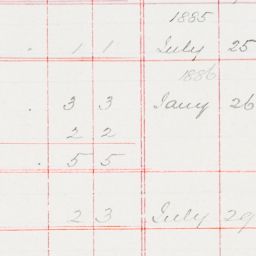 1885
. 1 1 July 25
1886
. 3 3 Jany 26
2 2
. 5 5
2 3 July 29